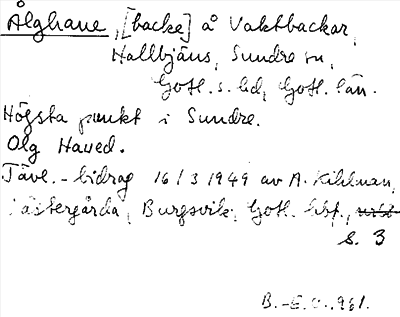 Ålghaue, [backe] å Vaktbackar,
Hallbjäns, Sundre sn,
Gotl. s. hd, Gotl. län.
Högsta punkt i Sundre.
Olg Haued.
Tävl.-bidrag 16/3 1949 av A. Kihlman,
Västergårda, Burgsvik, Gotl.
s. 3